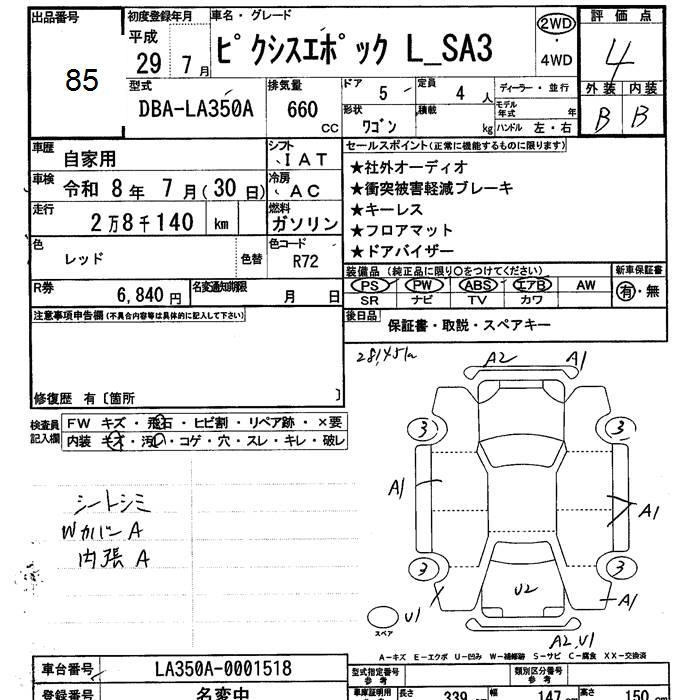 出品番号
85
初度登録年月
平成
29 7月
車名・グレード
ピクシスエポック L_SA3
2WD
・
4WD
評価点
4
外装 内装
B B
型式
DBA-LA350A
排気量
660
CC
ドア
5
定員
4 人
形状
ワゴン
積載
kg
ディーラー・並行
モデル年式 年
ハンドル 左・右
車歴
自家用
シフト
IAT
車検
令和 8年 7月(30日)
冷房
AC
走行
2万8千140 km
燃料
ガソリン
色
レッド
色替
色コード
R72
R券
6,840円
名変通知期限
月 日
セールスポイント(正常に機能するものに限ります)
★社外オーディオ
★衝突被害軽減ブレーキ
★キーレス
★フロアマット
★ドアバイザー
装備品(純正品に限り○をつけてください)
PS PW ABS エアB AW
SR ナビ TV カワ
新車保証書
有・無
後日品
保証書・取説・スペアキー
注意事項申告欄(不具合内容等は具体的に記入して下さい)
修復歴 有〔箇所 〕
検査員
記入欄
FW キズ・飛石・ヒビ割・リペア跡・×要
内装 キズ・汚い・コゲ・穴・スレ・キレ・破レ
シートシミ
Wカバー A
内張 A
A2 A1
3 3
A1 A1
3 3
U2
U1
スペア
A1
A2,U1
A－キズ E－エクボ U－凹み W－補修跡 S－サビ C－腐食 XX－交換済
車台番号
LA350A-0001518
登録番号
名変中
型式指定番号
参考
類別区分番号
参考
車庫証明用
長さ 339 cm
幅 147 cm
高さ 150 cm